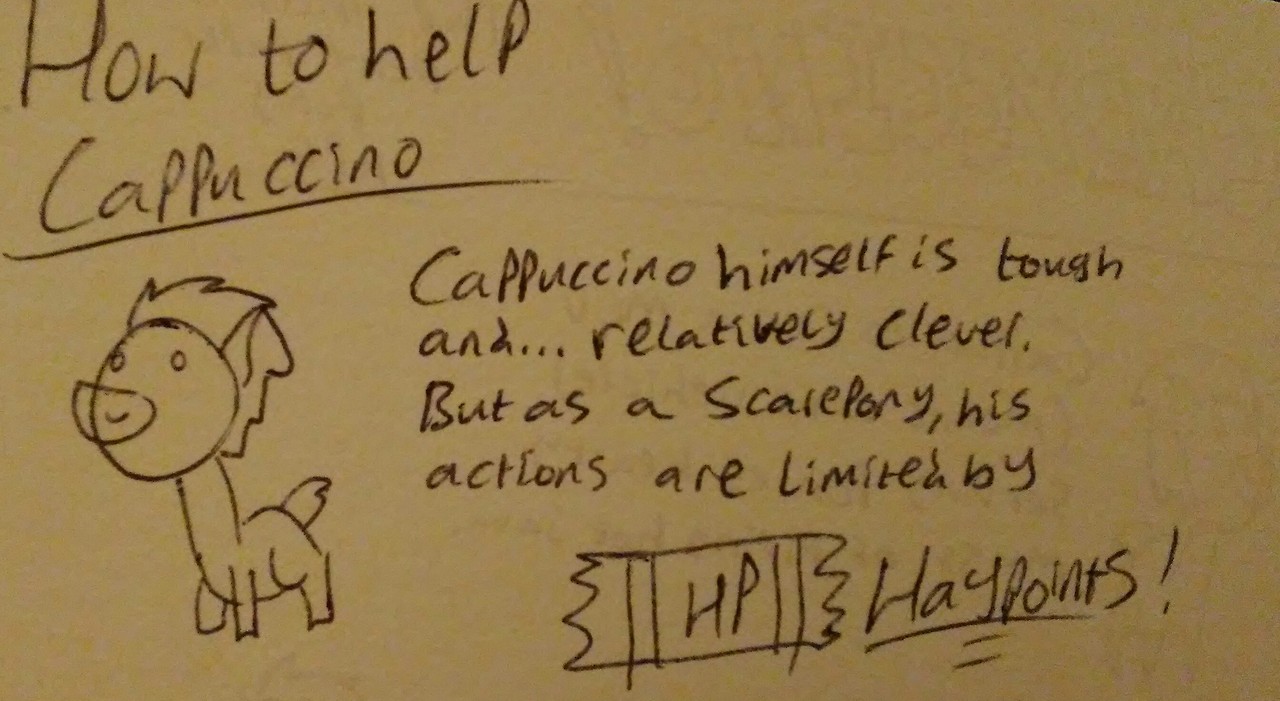 How to help
Cappuccino
Cappuccino himself is tough
and... relatively clever.
But as a Scarepony, his
actions are limited by
HP Haypoints!